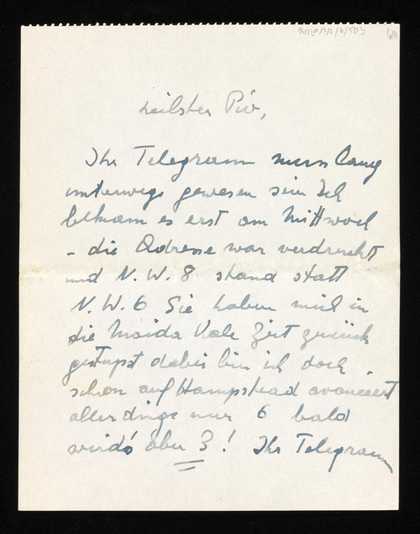 Ihr Telegramm muss lang
unterwegs gewesen sein Ich
bekam es erst am Mittwoch
- die Adresse war verdreht
und N.W. 8 stand statt
N.W. 6 Sie haben mich in
die Maida Vale Zeit zurück
gestupst dabei bin ich doch
schon auf Hampstead avanciert
allerdings nur 6 bald
wird's aber 3! Ihr Telegramm